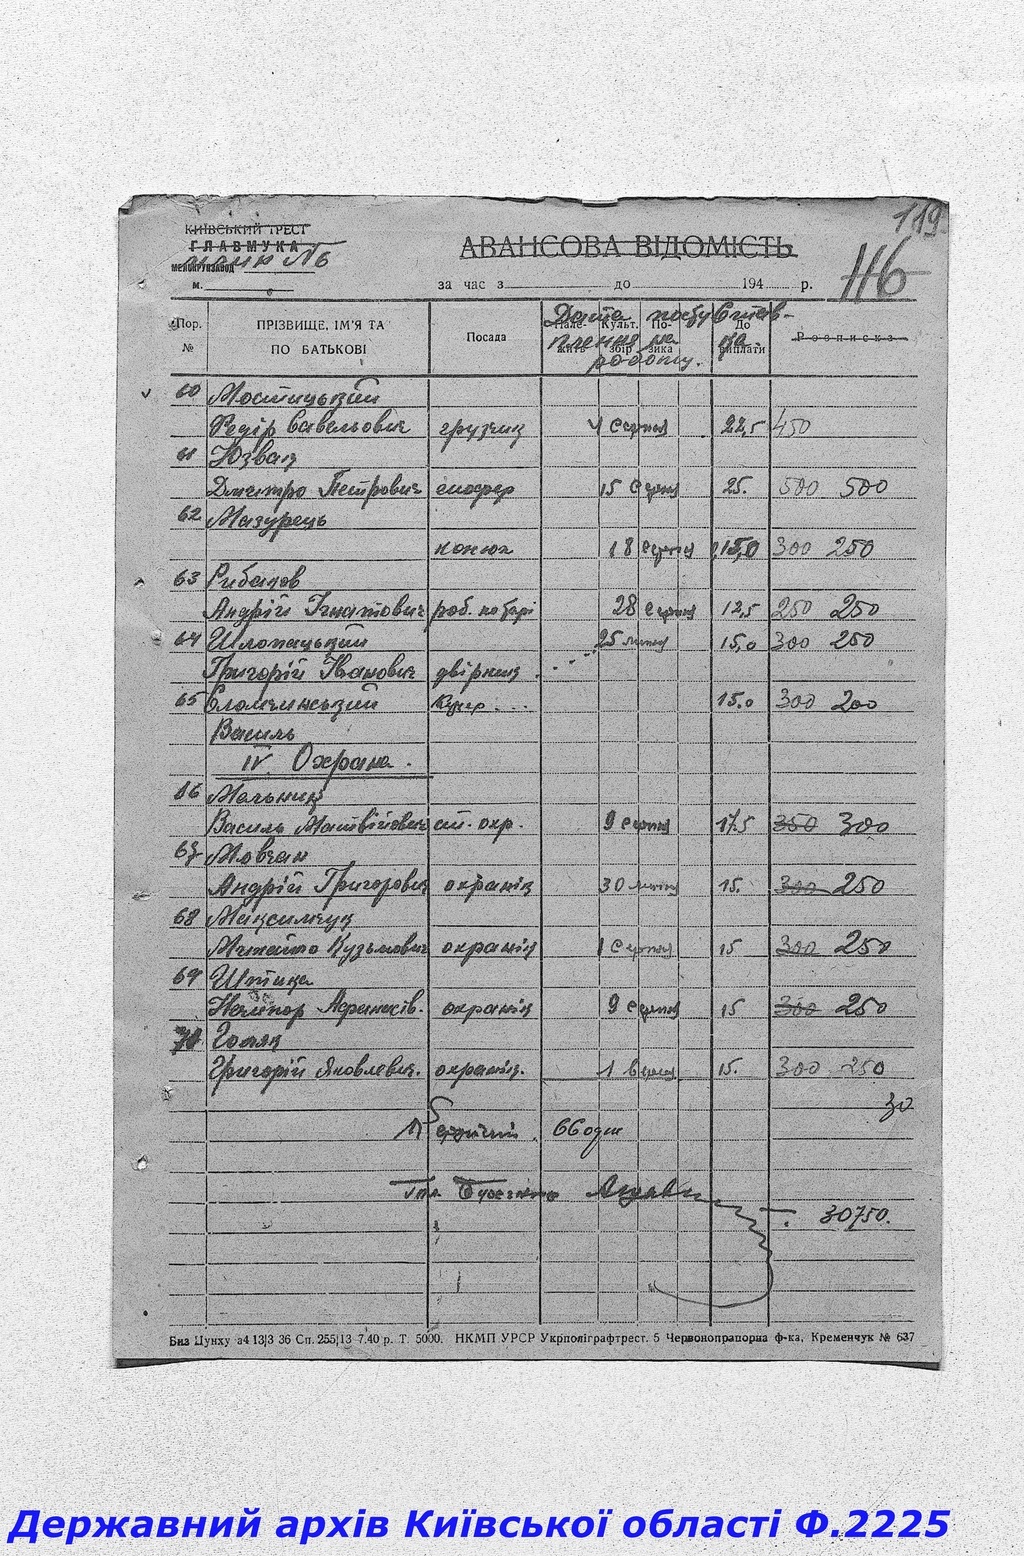 119
КИЇВСЬКИЙ ТРЕСТ
ГЛАВМУКА
АВАНСОВА ВІДОМІСТЬ
116
м.
за час з до 194 р.
Пор. № ПРІЗВИЩЕ, ІМ'Я ТА ПО БАТЬКОВІ Посада Нале-жить Культ. збір По-зика До виплати Розписка
Дата поступлення на роботу. Ставка
60 Мостицький
Федір Савельович грузчик 4 Серпня 22,5 450
61 Юзвак
Дмитро Петрович шофер 15 Серпня 25. 500 500
62 Мазурець
конюх 18 Серпня 15,0 300 250
63 Рибаков
Андрій Ігнатович роб. 28 Серпня 12,5 250 250
64 Шлопацький 25 липня 15,0 300 250
Григорій Іванович двірник
65 Сломчинський Кучер 15.0 300 200
Василь
IV. Охрана.
66 Мельник
Василь Матвійович ст. охр. 9 Серпня 17.5 350 300
67 Мовчан
Андрій Григорович охранік 30 липня 15. 300 250
68 Максимчук
Михайло Кузьмович охранік 1 Серпня 15 300 250
69 Штика
Афанасів. охранік 9 Серпня 15 300 250
70
Григорій Яковлевич. охранік. 1 15. 300 250
30
66 одн
30750.
Биз Цунху з4 13|3 36 Сп. 255|13 7.40 р. Т. 5000. НКМП УРСР Укрполіграфтрест. 5 Червонопрапорна ф-ка, Кременчук № 637
Державний архів Київської області Ф.2225